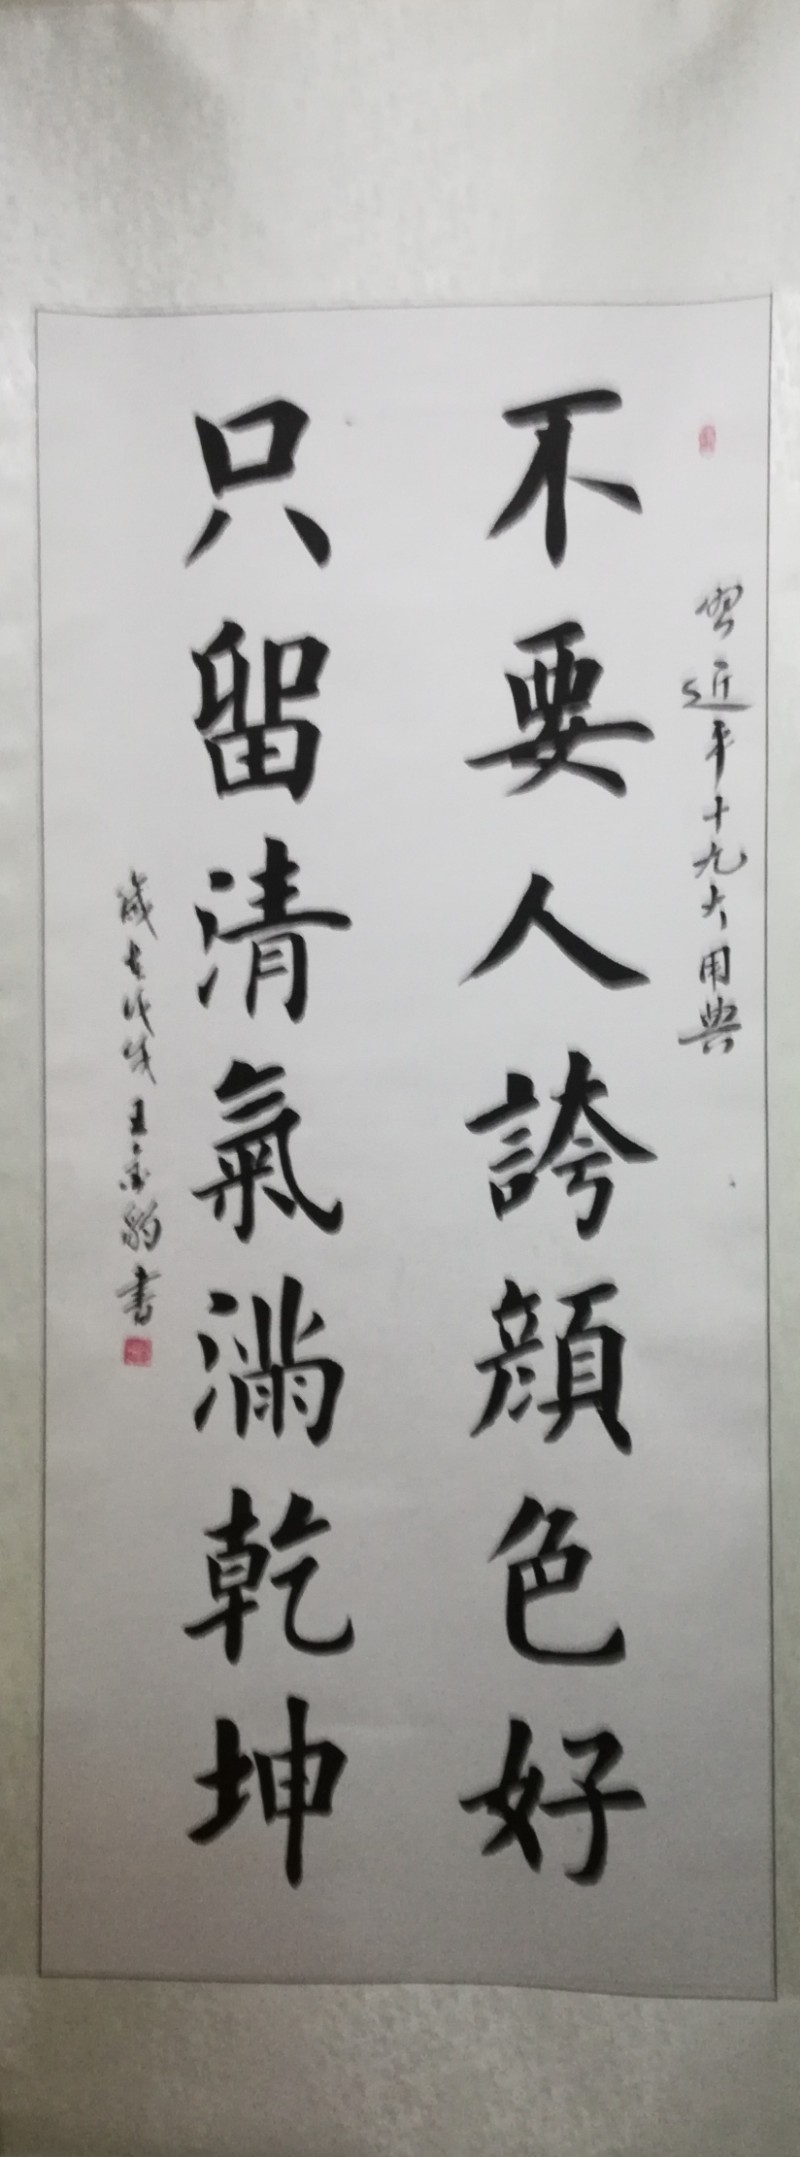 習近平十九大用典
不要人誇顔色好
只留清氣滿乾坤
歲在戊戌王金豹書